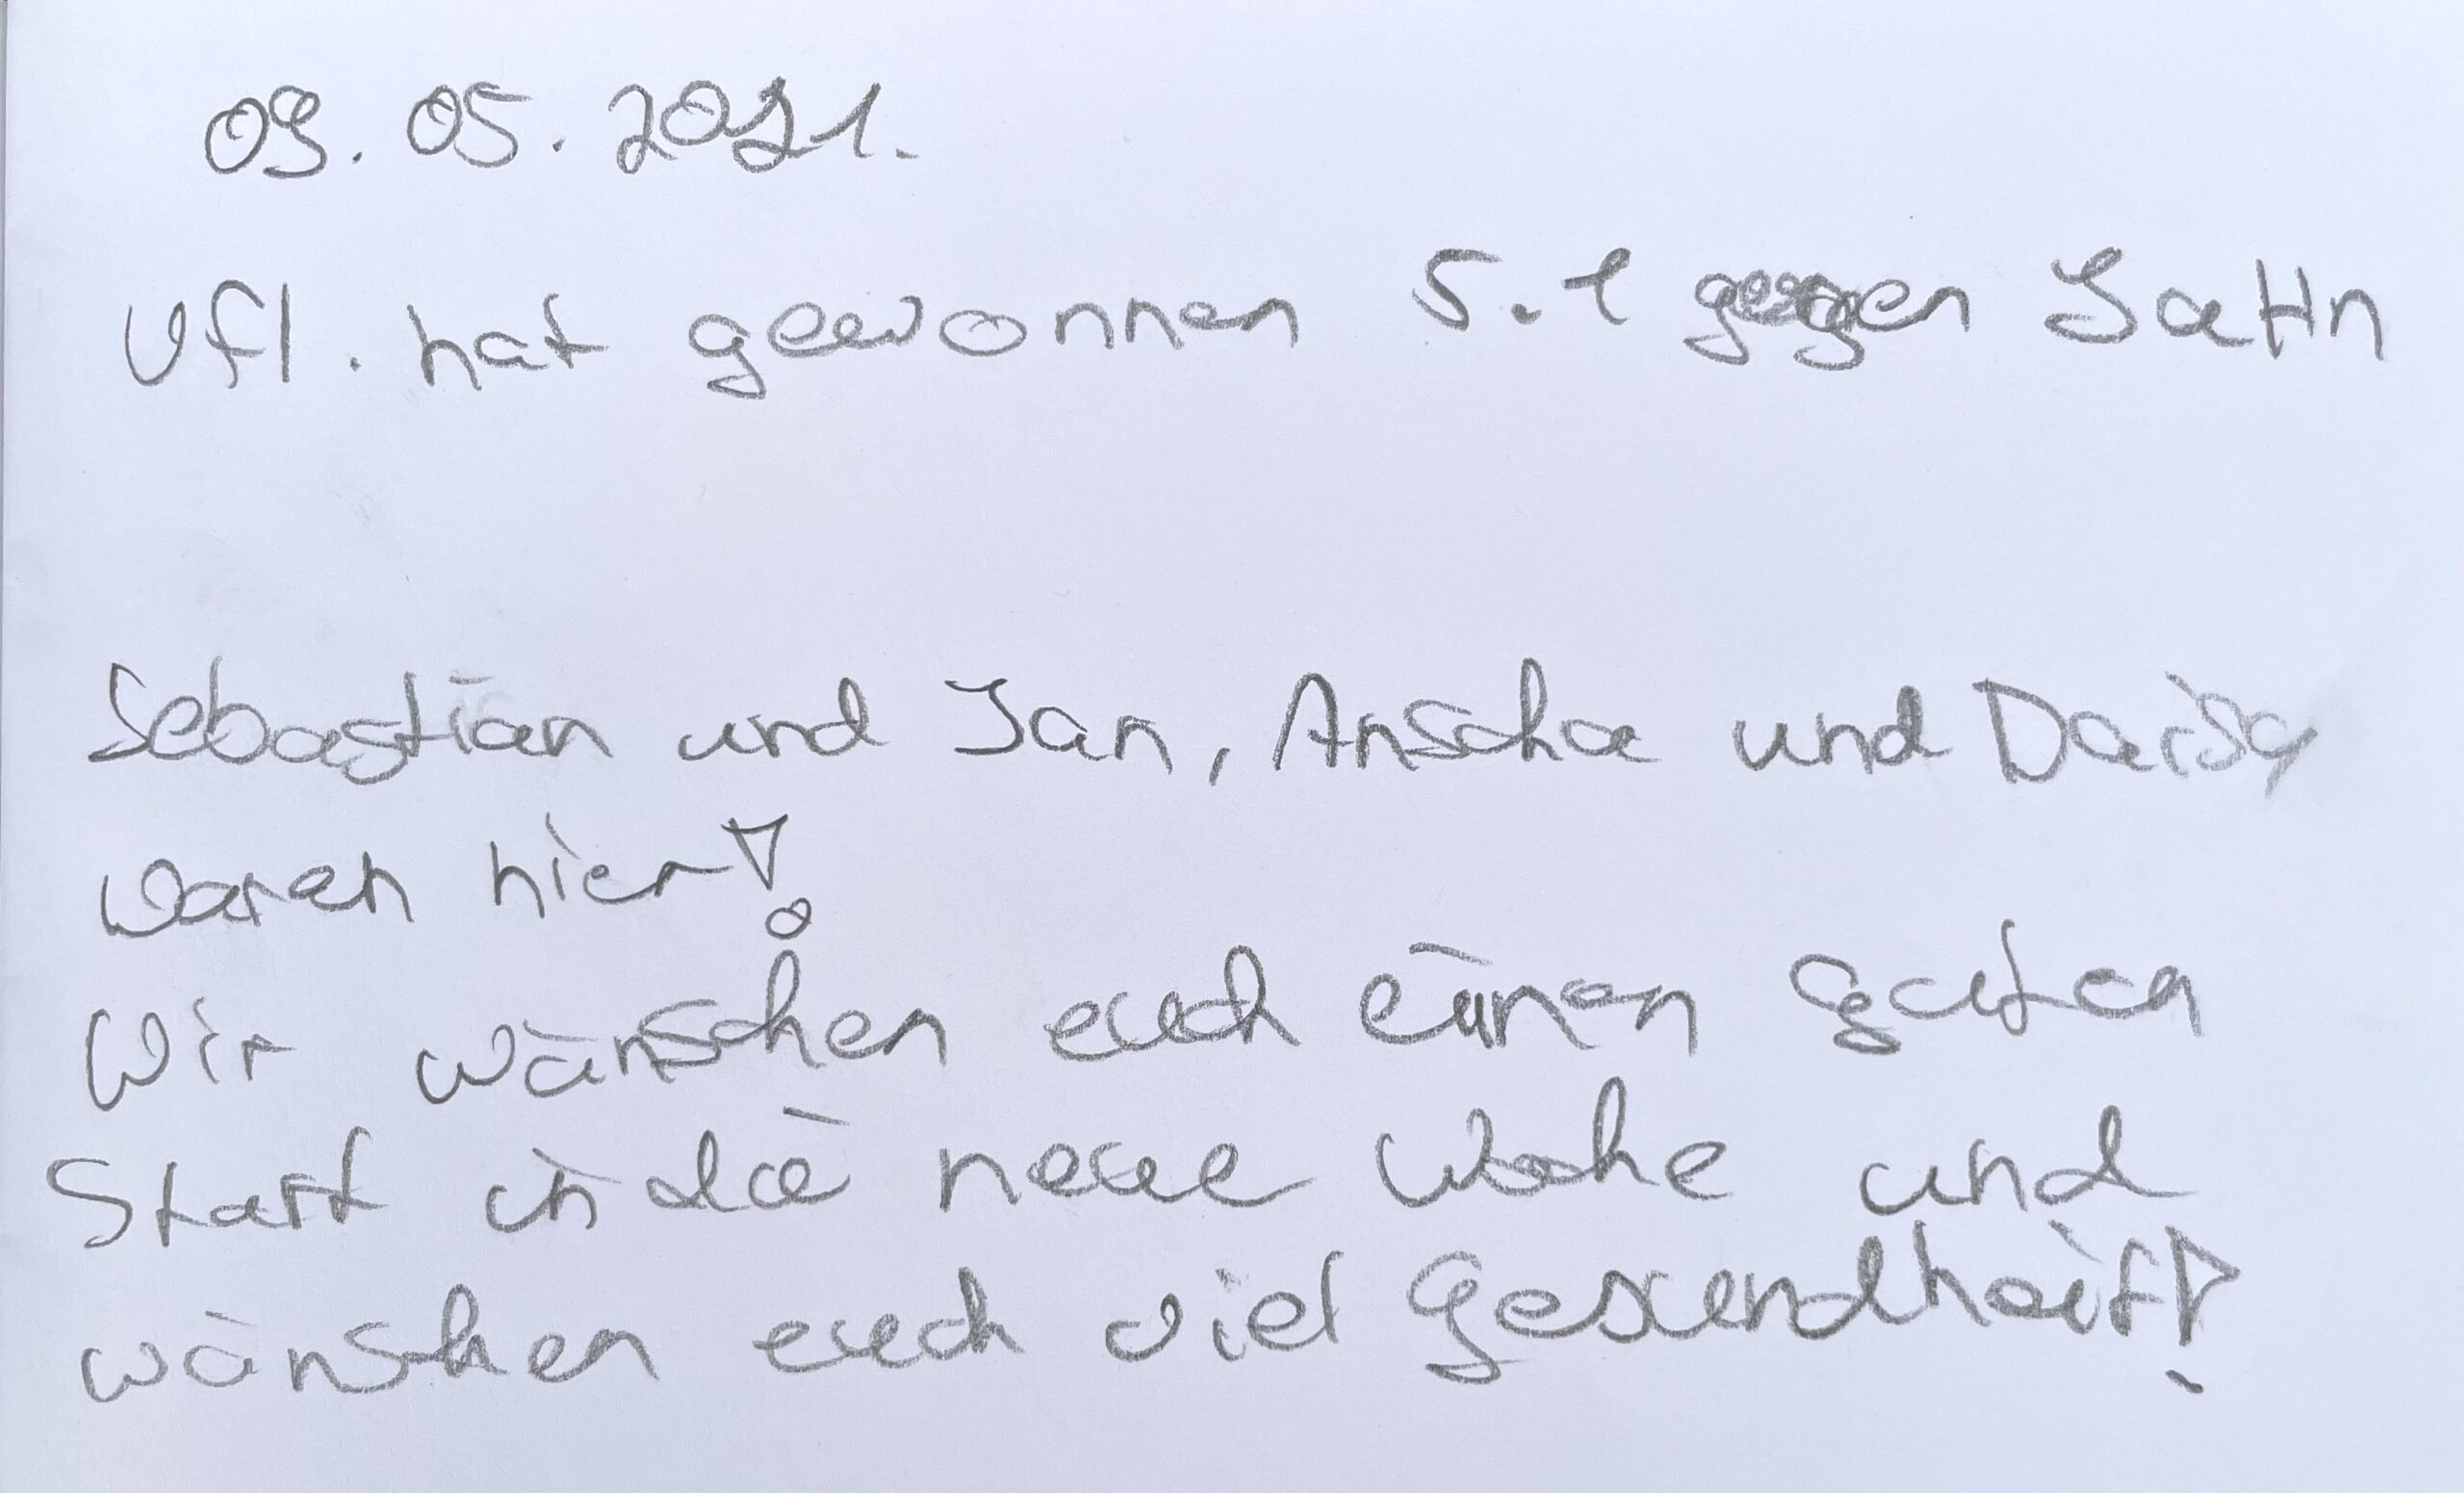 09.05.2021.
Vfl. hat gewonnen 5.1 gegen JaHn
Sebastian und Jan, Anscha und Daisy
waren hier!
Wir wünschen euch einen guten
Start in die neue Woche und
wünschen euch viel Gesundheit!